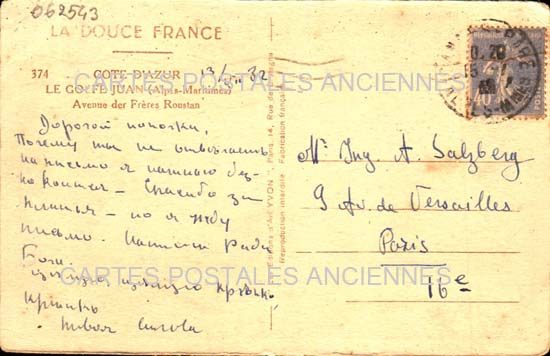 062543
LA DOUCE FRANCE
374 CÔTE D'AZUR
13/5 32
LE GOLFE JUAN (Alpes-Maritimes)
Avenue des Frères Roustan
CARTES POSTALES ANCIENNES
Дорогой папочка,
Почему ты не отвечаешь
на письмо я начинаю без-
Спасибо за
платья – но я жду
письмо. Напиши ради
Бога.
целую целую крепко
крепко
твоя
Editions d'Art YVON
Paris, 14, Rue de
Reproduction interdite
Fabrication française
Mr Ing A. Salzberg
9 Av. de Versailles
Paris
16e
CARTES POSTALES ANCIENNES
40